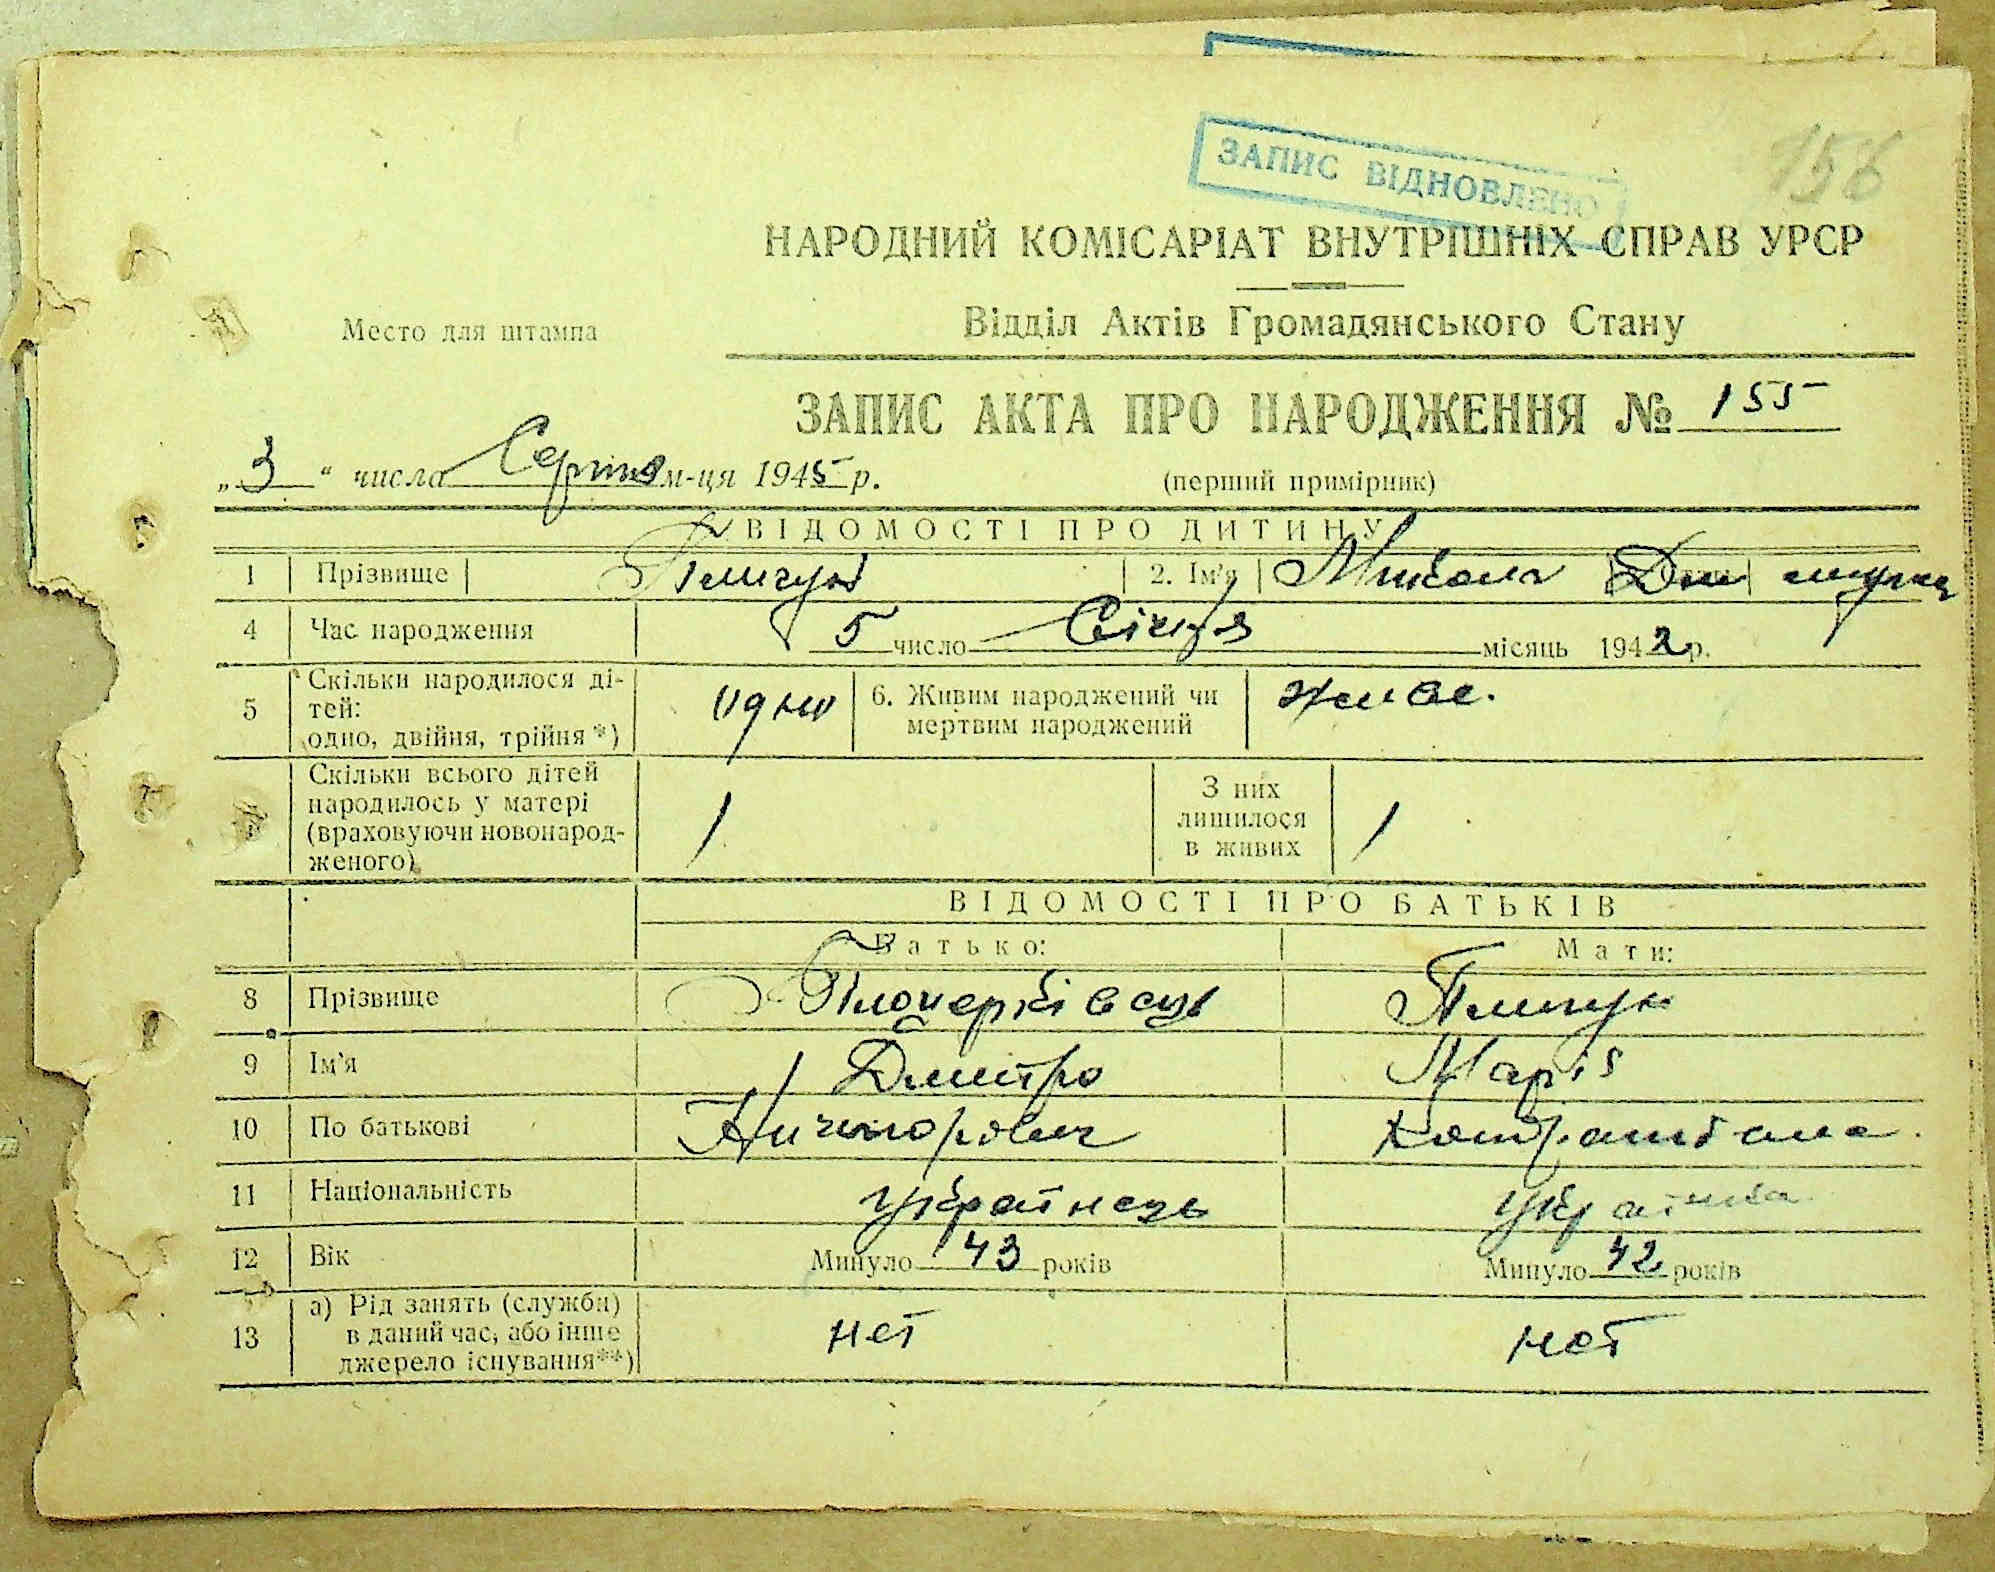 156
ЗАПИС ВІДНОВЛЕНО
НАРОДНИЙ КОМІСАРІАТ ВНУТРІШНІХ СПРАВ УРСР
Место для штампа
Відділ Актів Громадянського Стану
ЗАПИС АКТА ПРО НАРОДЖЕННЯ № 155
„ 3 “ числа Серпня м-ця 1945 р. (перший примірник)
ВІДОМОСТІ ПРО ДИТИНУ
1 Прізвище 2. Ім'я Микола
4 Час народження 5 число Січня місяць 1942 р.
5 Скільки народилося ді-
тей:
одно, двійня, трійня *) одно
6. Живим народжений чи
мертвим народжений живе.
Скільки всього дітей
народилось у матері
(враховуючи новонарод-
женого) 1
З них
лишилося
в живих 1
ВІДОМОСТІ ПРО БАТЬКІВ
Батько: Мати:
8 Прізвище
9 Ім'я Дмитро Марія
10 По батькові Ничипорович
11 Національність українець українка
12 Вік Минуло 43 років Минуло 42 років
13 а) Рід занять (служби)
в даний час, або інше
джерело існування**) нет нет